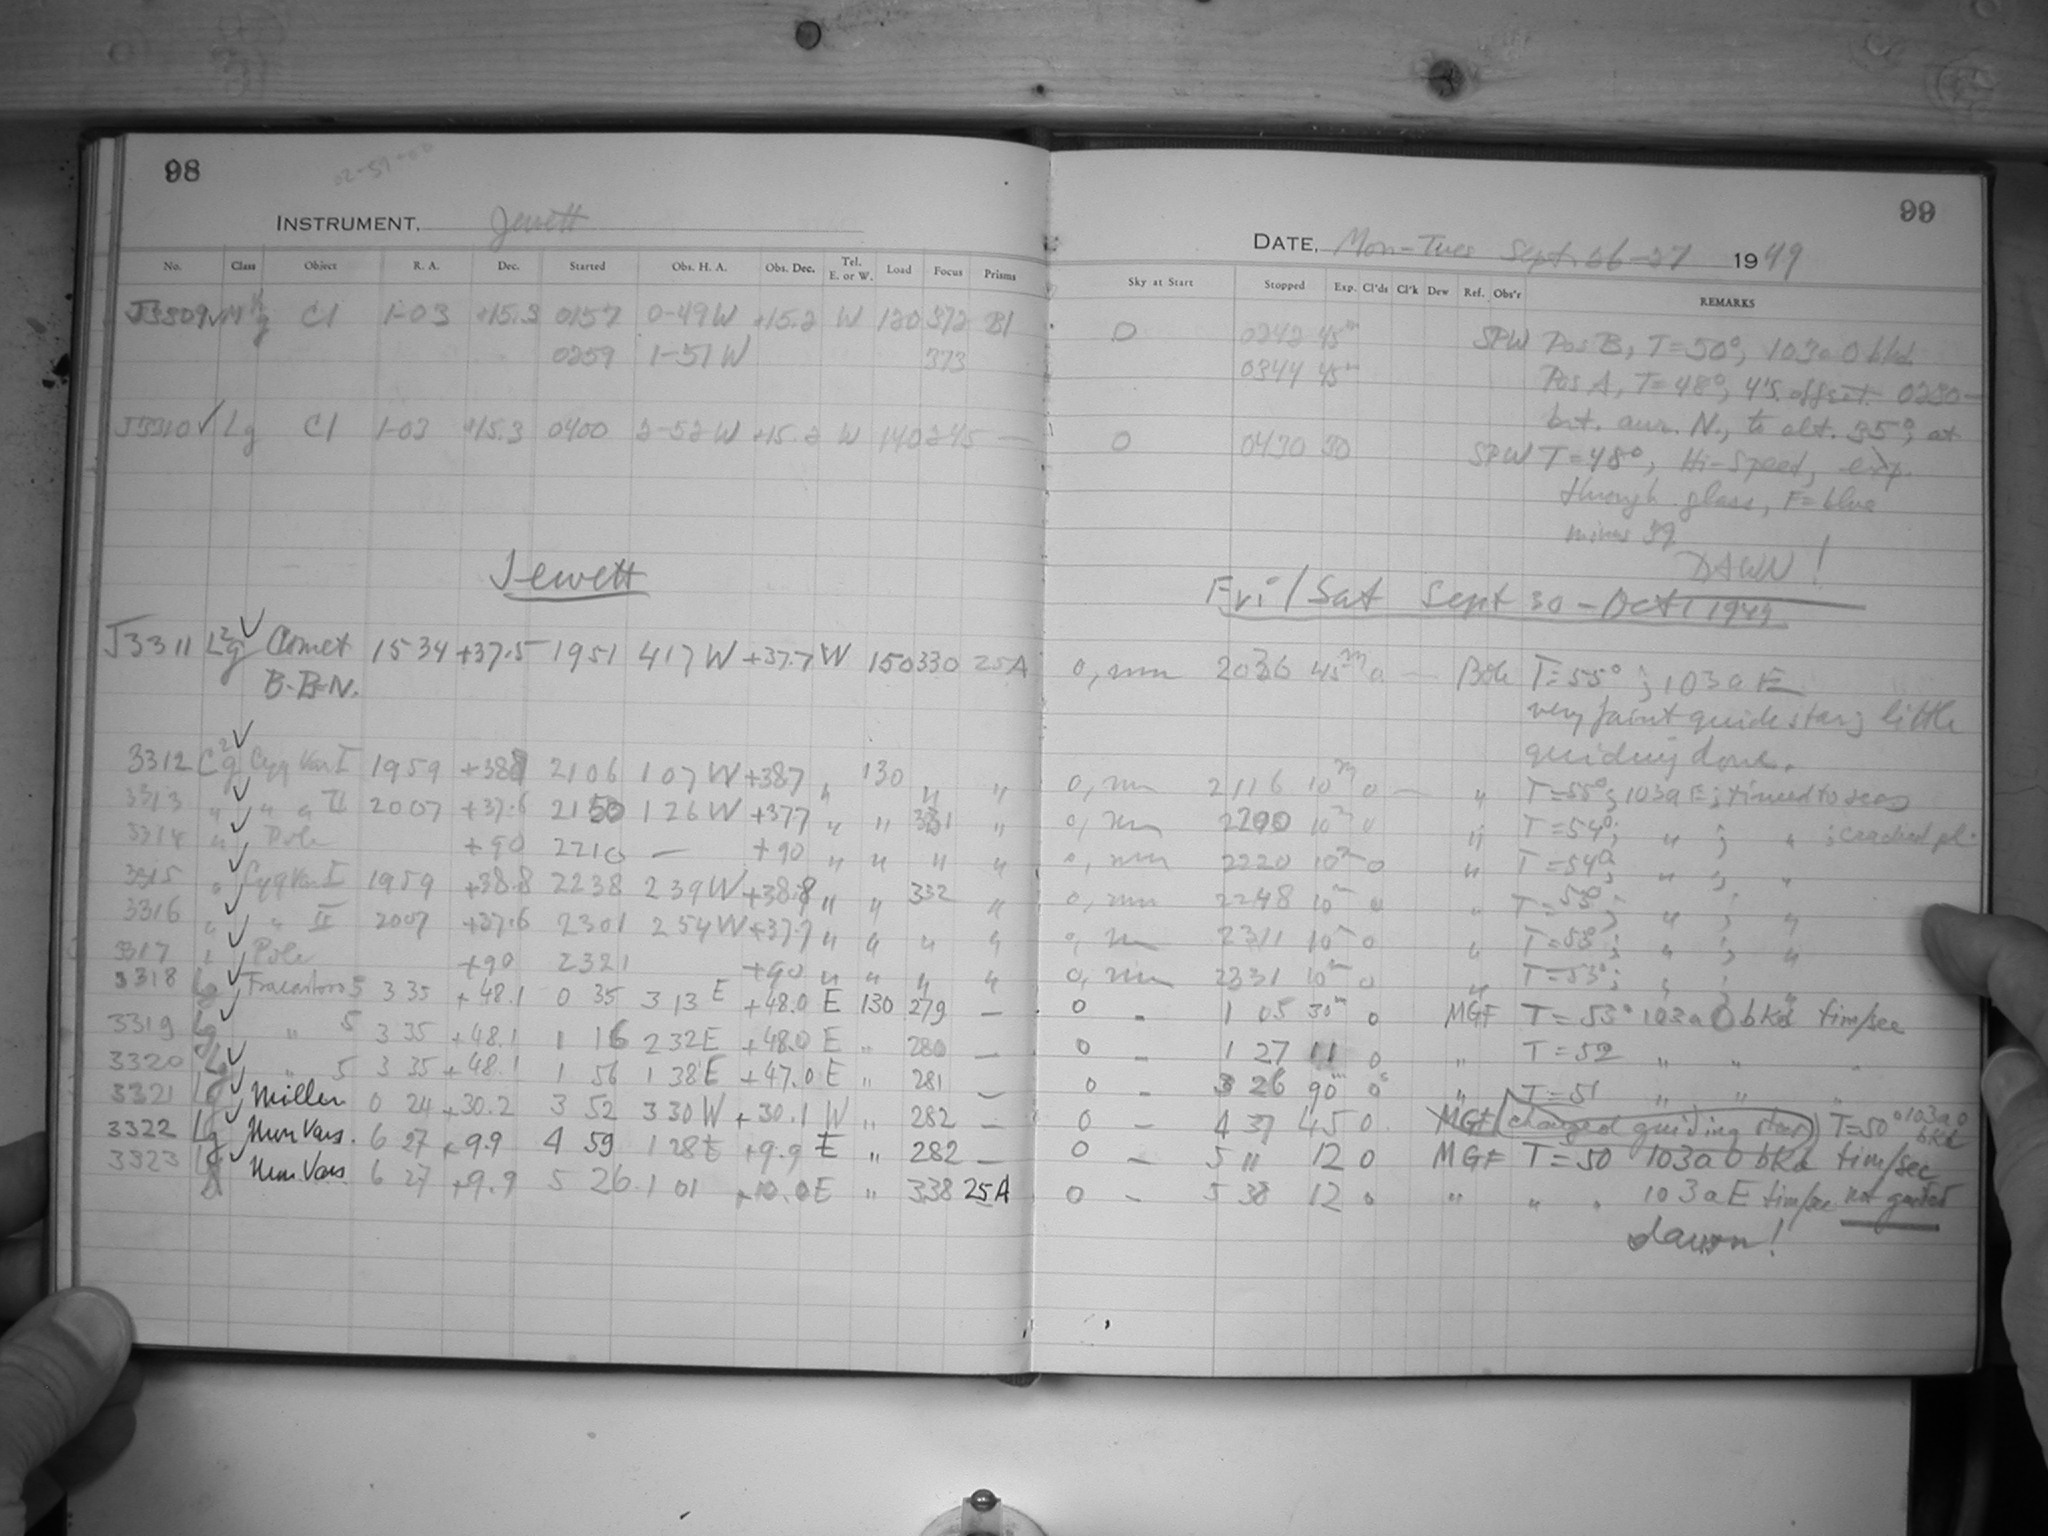 98
INSTRUMENT. Jewett
No. Class Object R. A. Dec. Started Obs. H. A. Obs. Dec. Tel. E. or W. Load Focus Prisms
J3309 Cl 1-03 +15.3 0157 0-49W +15.2 W 120 372 B1
0259 1-51W 373
J3310 ✓ Lg Cl 1-03 +15.3 0400 2-52W +15.2 W 140 245 —
Jewett
J3311 L²g ✓ Comet 1534 +37.5 1951 417W +37.7 W 150 330 25A
B-B-N.
3312 C²g ✓ Cyg Var I 1959 2106 107W +387 " 130 " "
3313 " ✓ " " II 2007 +37.6 2150 126W +377 " " 331 "
3314 " ✓ Pole +90 2210 — +90 " " " "
3315 " ✓ Cyg Var I 1959 +38.8 2238 239W +38.8 " " 332 "
3316 " ✓ " II 2007 +37.6 2301 254W +37.7 " " " "
3317 " ✓ Pole +90 2321 +90 " " " "
3318 Lg ✓ Fracastoro 5 3 35 +48.1 0 35 3 13 E +48.0 E 130 279 —
3319 Lg ✓ " 5 3 35 +48.1 1 16 2 32E +48.0 E " 280 —
3320 Lg ✓ " 5 3 35 +48.1 1 56 1 38E +47.0 E " 281 —
3321 Lg ✓ Miller 0 24 +30.2 3 52 3 30W +30.1 W " 282 —
3322 Lg ✓ Mon Vars. 6 27 +9.9 4 59 1 28E +9.9 E " 282 —
3323 Mon Vars 6 27 +9.9 5 26 1 01 +10.0 E " 338 25A
99
DATE. Mon-Tues Sept. 26-27 1949
Sky at Start Stopped Exp. Cl'ds Cl'k Dew Ref. Obs'r REMARKS
0 0242 45m SPW Pos B, T=50°, 103a O bkd
0344 45m Pos A, T=48°, 4's. offset. 0230-
brt. aur. N., to alt. 35°, at
0 0430 30 SPW T=48°, Hi-Speed, exp.
through glass, F=blue
minus 39
DAWN!
Fri/Sat Sept 30-Oct 1 1949
0, 2036 45m 0 — Bok T=55°; 103a E
very faint guide star; little
guiding done.
0, 2116 10m 0 — " T=55°; 103a E; timed to secs
0, 2200 10m 0 " T=54°; " ; " ; cracked pl.
0, 2220 10m 0 " T=54°; " ; "
0, 2248 10m 0 " T=53°; " ; "
0, 2311 10m 0 " T=53°; " ; "
0, 2331 10m 0 " T=53°; ; ; "
0 - 1 05 30m 0 MGF T=53° 103a O bkd tim/sec
0 - 1 27 11 0 " T=52 " "
0 - 3 26 90m 0 " T=51 " " "
0 - 4 37 45 0 MGF (changed guiding star) T=50° 103a O bkd
0 - 5 11 12 0 MGF T=50 103a O bkd tim/sec
0 - 5 38 12 0 " " " 103aE tim/sec not guided
dawn!